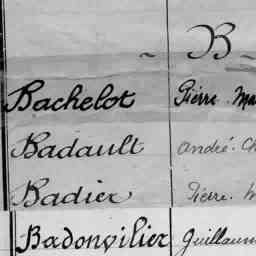 ~ B ~
Bachelot Pierre. Ma
Badault André. Ch
Badier Pierre. M
Badonvilier Guillaum